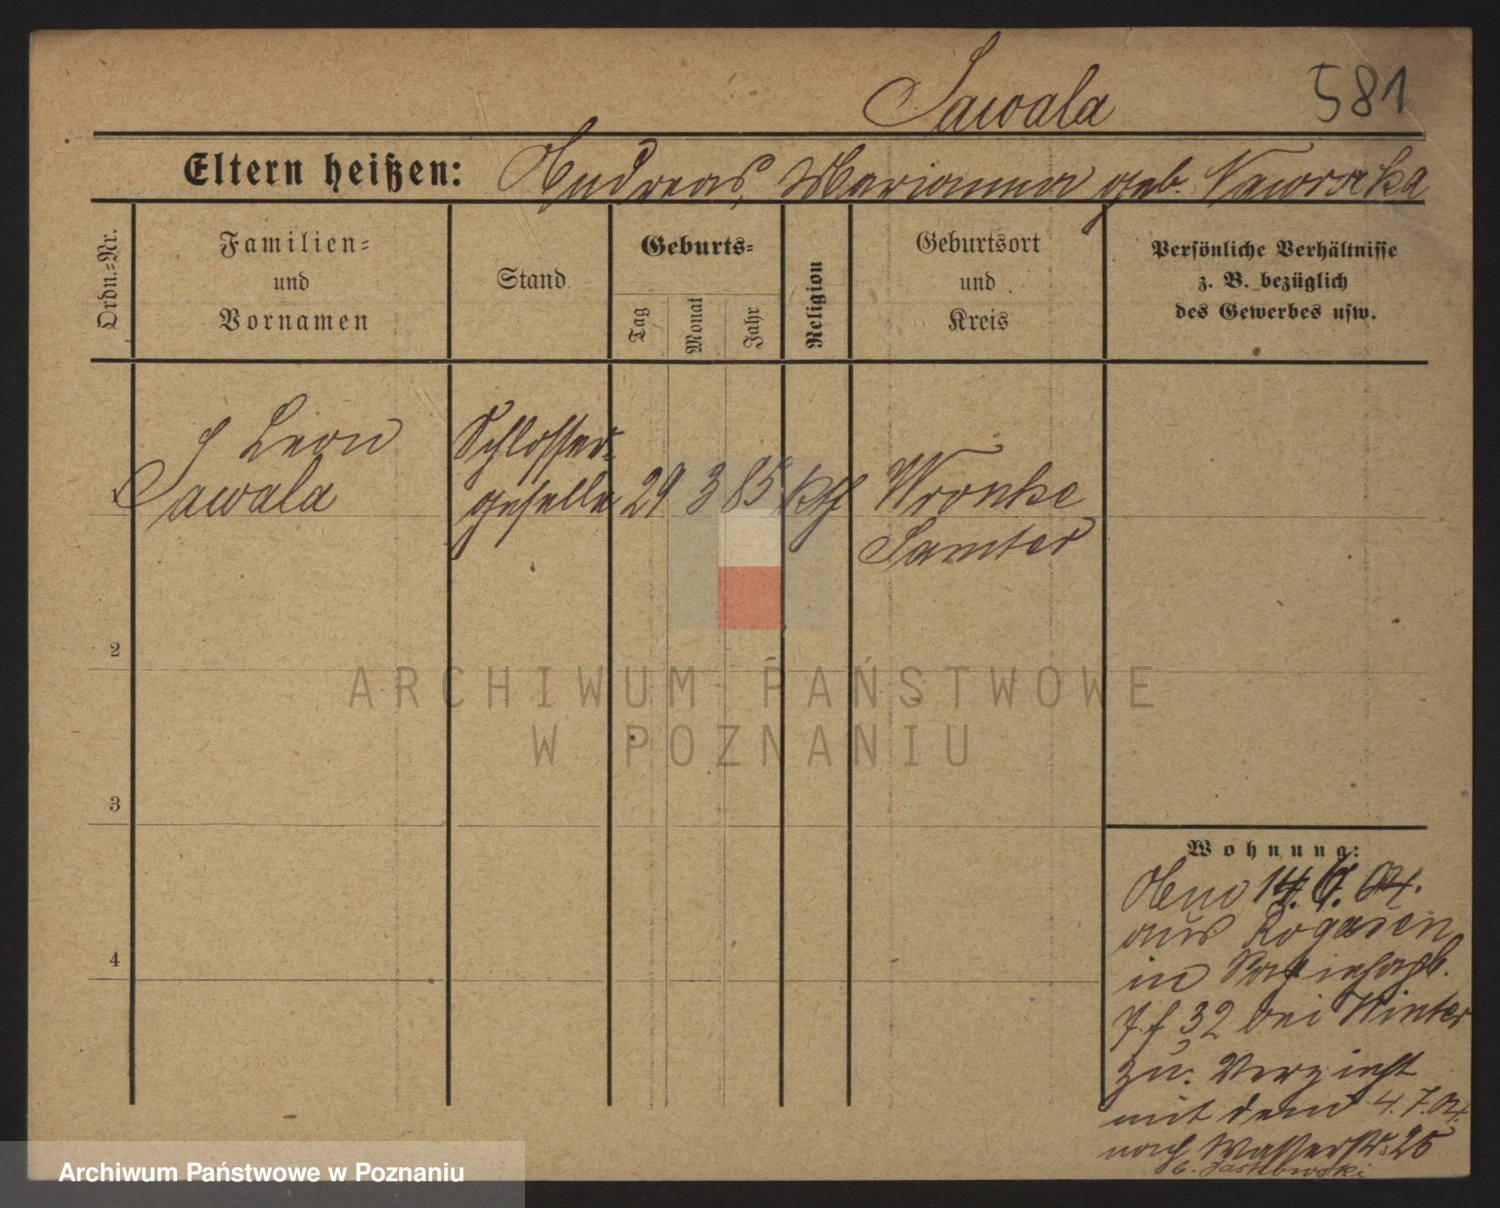 581
Sawala
Eltern heißen: Andreas, Marianna geb. Nawrocka
Ordn.-Nr.
Familien-
und
Vornamen
Stand
Geburts-
Tag
Monat
Jahr
Religion
Geburtsort
und
Kreis
Persönliche Verhältnisse
z. B. bezüglich
des Gewerbes usw.
1
Leon
Sawala
Schlosser-
geselle
29 3 85 kth
Wronke
Samter
2
3
4
Wohnung:
14. 6. 04.
aus Rogasen
in
32 bei Winter
zu. Verzieht
mit dem 4.7.04.
nach Wasserstr. 25
ARCHIWUM PAŃSTWOWE
W POZNANIU
Archiwum Państwowe w Poznaniu